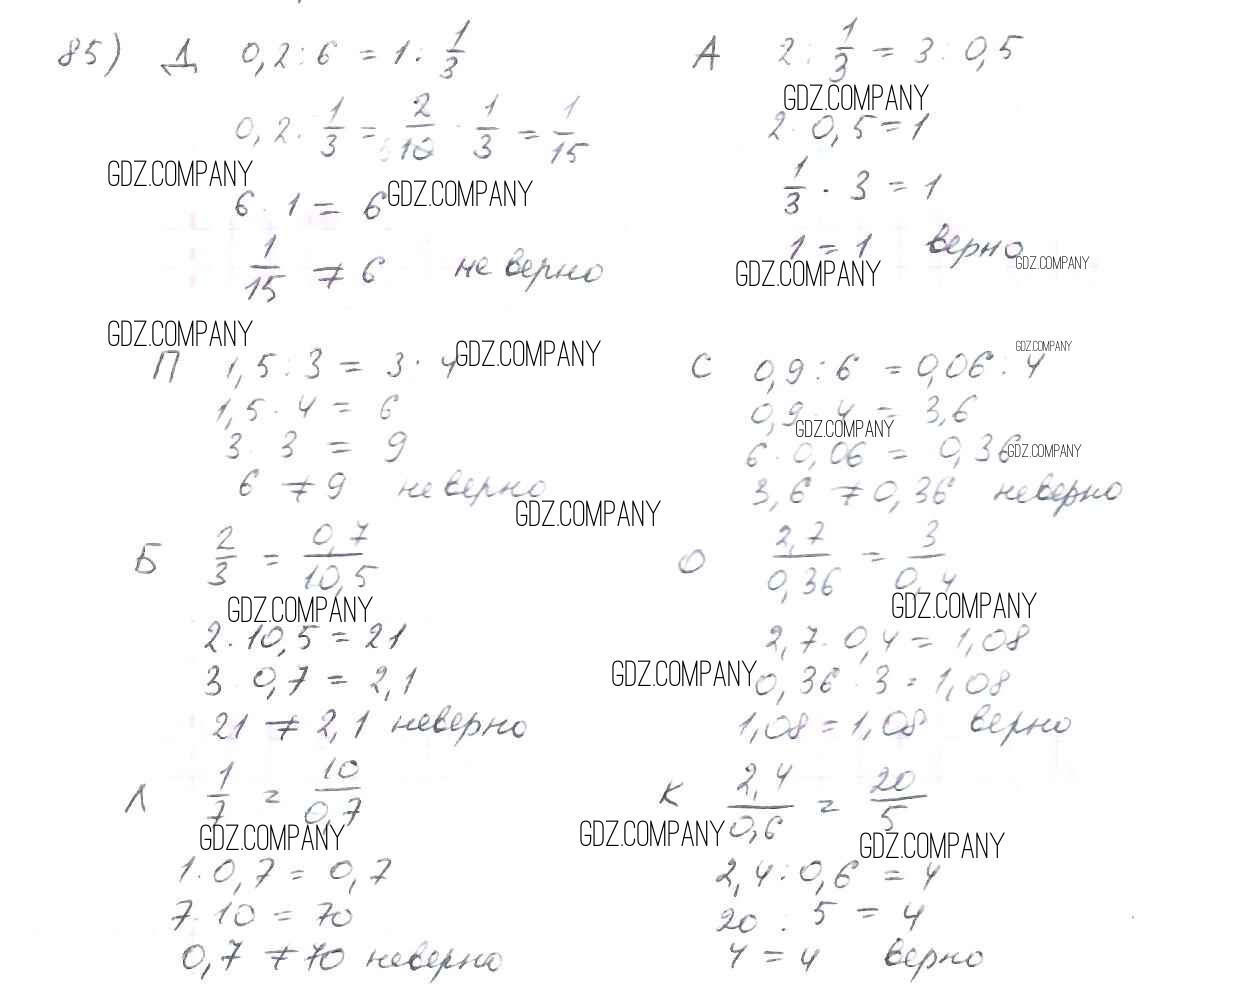 85) Д 0,2 : 6 = 1 : 1/3
0,2 · 1/3 = 2/10 · 1/3 = 1/15
GDZ.COMPANY
6 · 1 = 6
GDZ.COMPANY
1/15 ≠ 6 не верно
GDZ.COMPANY
А 2 : 1/3 = 3 : 0,5
GDZ.COMPANY
2 · 0,5 = 1
1/3 · 3 = 1
1 = 1 верно
GDZ.COMPANY
GDZ.COMPANY
П 1,5 : 3 = 3 : 4
GDZ.COMPANY
1,5 · 4 = 6
3 · 3 = 9
6 ≠ 9 неверно
GDZ.COMPANY
С 0,9 : 6 = 0,06 : 4
GDZ.COMPANY
0,9 · 4 = 3,6
GDZ.COMPANY
6 · 0,06 = 0,36
GDZ.COMPANY
3,6 ≠ 0,36 неверно
Б 2/3 = 0,7/10,5
GDZ.COMPANY
2 · 10,5 = 21
3 · 0,7 = 2,1
21 ≠ 2,1 неверно
О 2,7/0,36 = 3/0,4
GDZ.COMPANY
2,7 · 0,4 = 1,08
GDZ.COMPANY
0,36 · 3 = 1,08
1,08 = 1,08 верно
Л 1/7 = 10/0,7
GDZ.COMPANY
1 · 0,7 = 0,7
7 · 10 = 70
0,7 ≠ 70 неверно
К 2,4/0,6 = 20/5
GDZ.COMPANY
GDZ.COMPANY
2,4 : 0,6 = 4
20 : 5 = 4
4 = 4 верно